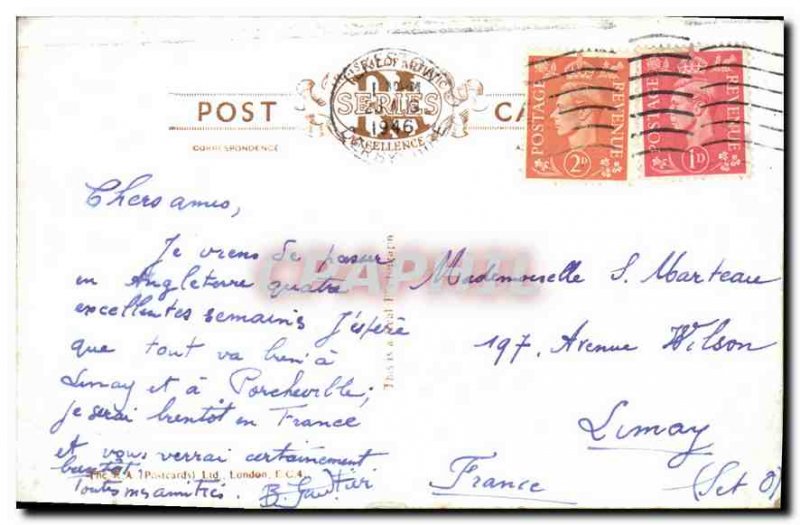 POST
CORRESPONDENCE
SERIES
EXCELLENCE
1946
POSTAGE
REVENUE
2D
POSTAGE
REVENUE
1D
Chers amis,
Je viens de passer
en Angleterre quatre
excellentes semaines J'espère
que tout va bien à
Limay et à Porcheville;
je serai bientôt en France
et vous verrai certainement
bientôt.
Toutes mes amitiés.
The R.A. (Postcards) Ltd., London, E.C.4.
This is a Real Photograph
CPAPHIL
Mademoiselle S. Marteau
197, Avenue Wilson
Limay
France
(Set O)